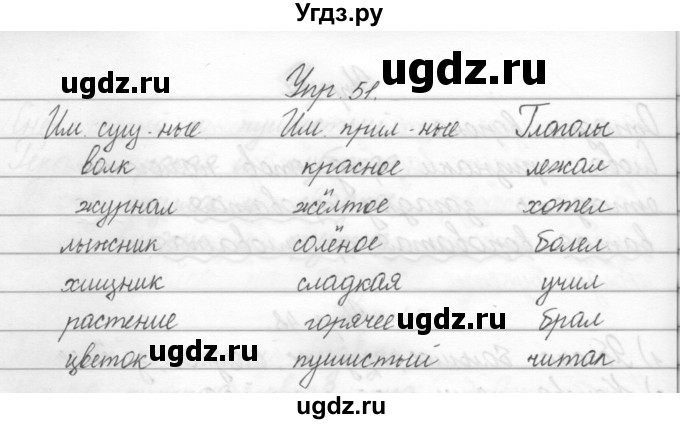 Угдз.ру
ugdz.ru Упр. 51. ugdz.ru
Им. сущ-ные Им. прил-ные Глаголы
волк красное лежал
журнал жёлтое хотел
лыжник солёное болел
хищник сладкая учил
растение горячее ugdz.ru брал
цветок ugdz.ru пушистый читал
ugdz.ru